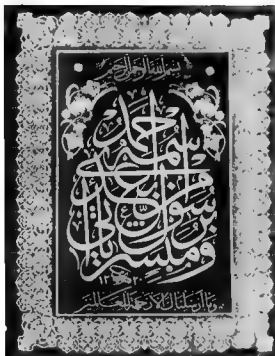 بسم الله الرحمن الرحيم
ومبشرا برسول يأتي من بعدي اسمه أحمد
وما أرسلناك إلا رحمة للعالمين